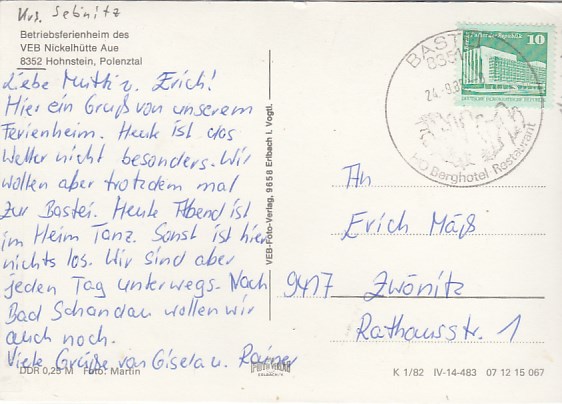 Krs. Sebnitz
Betriebsferienheim des
VEB Nickelhütte Aue
8352 Hohnstein, Polenztal
Liebe Mutti u. Erich!
Hier ein Gruß von unserem
Ferienheim. Heute ist das
Wetter nicht besonders. Wir
wollen aber trotzdem mal
zur Bastei. Heute Abend ist
im Heim Tanz. Sonst ist hier
nichts los. Wir sind aber
jeden Tag unterwegs. Nach
Bad Schandau wollen wir
auch noch.
Viele Grüße von Gisela u. Rainer
DDR 0,25 M Foto: Martin
VEB-Foto-Verlag, 9658 Erlbach i. Vogtl.
BASTEI
8351
24.-9.
HO Berghotel-Restaurant
10
An
Erich Mäß
9417 Zwönitz
Rathausstr. 1
K 1/82 IV-14-483 07 12 15 067